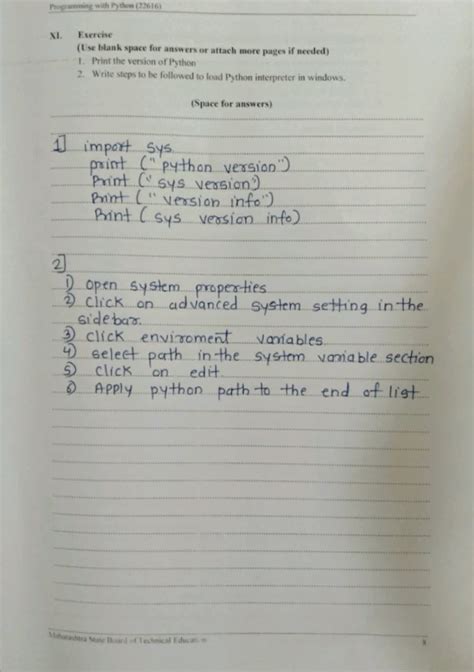 Programming with Python (22616)
XI. Exercise
(Use blank space for answers or attach more pages if needed)
1. Print the version of Python
2. Write steps to be followed to load Python interpreter in windows.
(Space for answers)
1] import sys
print ("python version")
Print ("sys version")
Print ("version info")
Print ( sys version info)
2]
1) open system properties
2) click on advanced system setting in the
sidebar.
3) click enviroment variables
4) select path in the system variable section
5) click on edit
6) APPly python path to the end of list
Maharashtra State Board of Technical Education
8